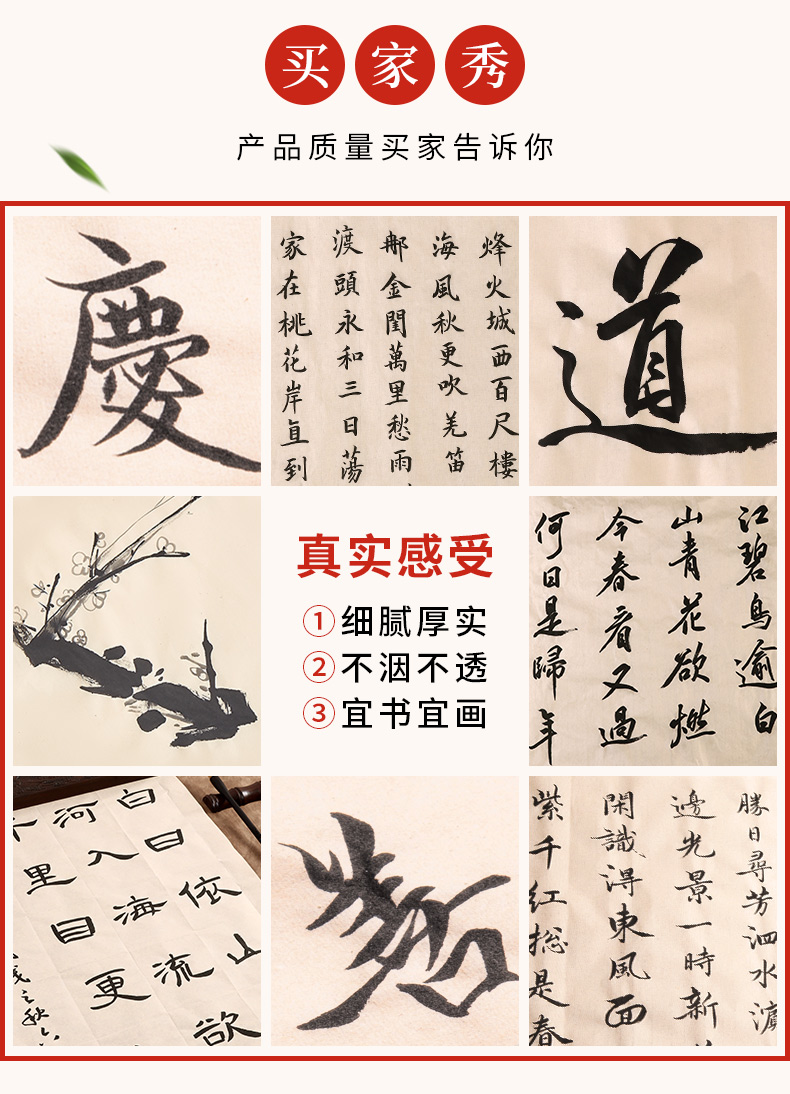 买家秀
产品质量买家告诉你
慶
烽火城西百尺樓
海風秋更吹羌笛
那金閨萬里愁雨
渡頭永和三日蕩
家在桃花岸直到
道
真实感受
①细腻厚实
②不洇不透
③宜书宜画
江碧鳥逾白
山青花欲燃
今春看又過
何日是歸年
白日依山
河入海流欲
千里目更
之秋
勝日尋芳泗水濱
邊光景一時新
閑識得東風面
紫千紅総是春